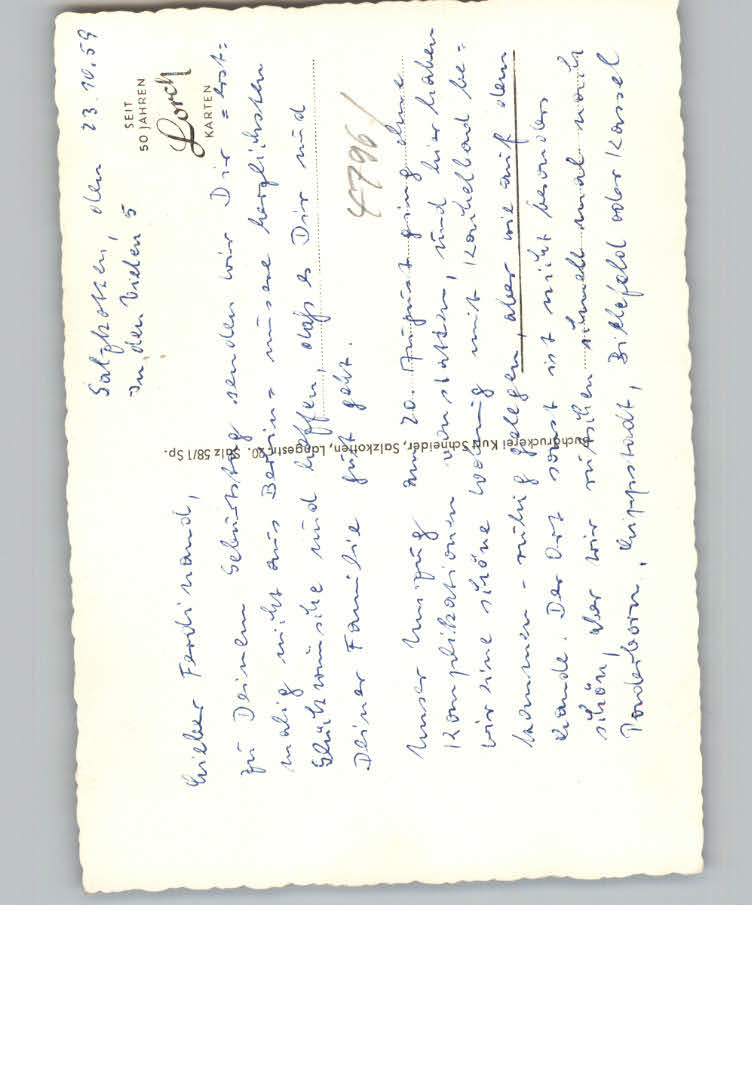 Salzkotten, den 23.10.59
In den Vielen 5
SEIT
50 JAHREN
Lorch
KARTEN
Lieber Ferdinand,
zu Deinem Geburtstag senden wir Dir - erst=
malig nicht aus Berlin - unsere herzlichsten
Glückwünsche und hoffen, daß es Dir und
Deiner Familie gut geht.
4796/
Unser Umzug am 20. August ging ohne
Komplikationen vonstatten, und hier haben
wir eine schöne Wohnung mit Kachelbad be=
kommen - ruhig gelegen, aber wie auf dem
Lande. Der Ort sonst ist nicht besonders
schön, aber wir rutschen schnell mal nach
Paderborn, Lippstadt, Bielefeld oder Kassel
Buchdruckerei Kurt Schneider, Salzkotten, Langestr. 20. Salz 58/1 Sp.